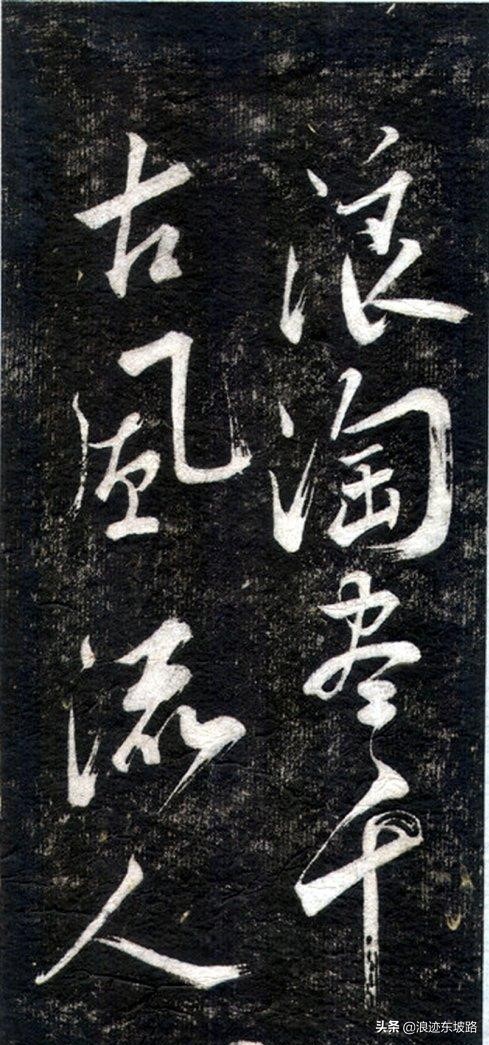 浪淘盡千
古風流人
头条 @浪迹东坡路